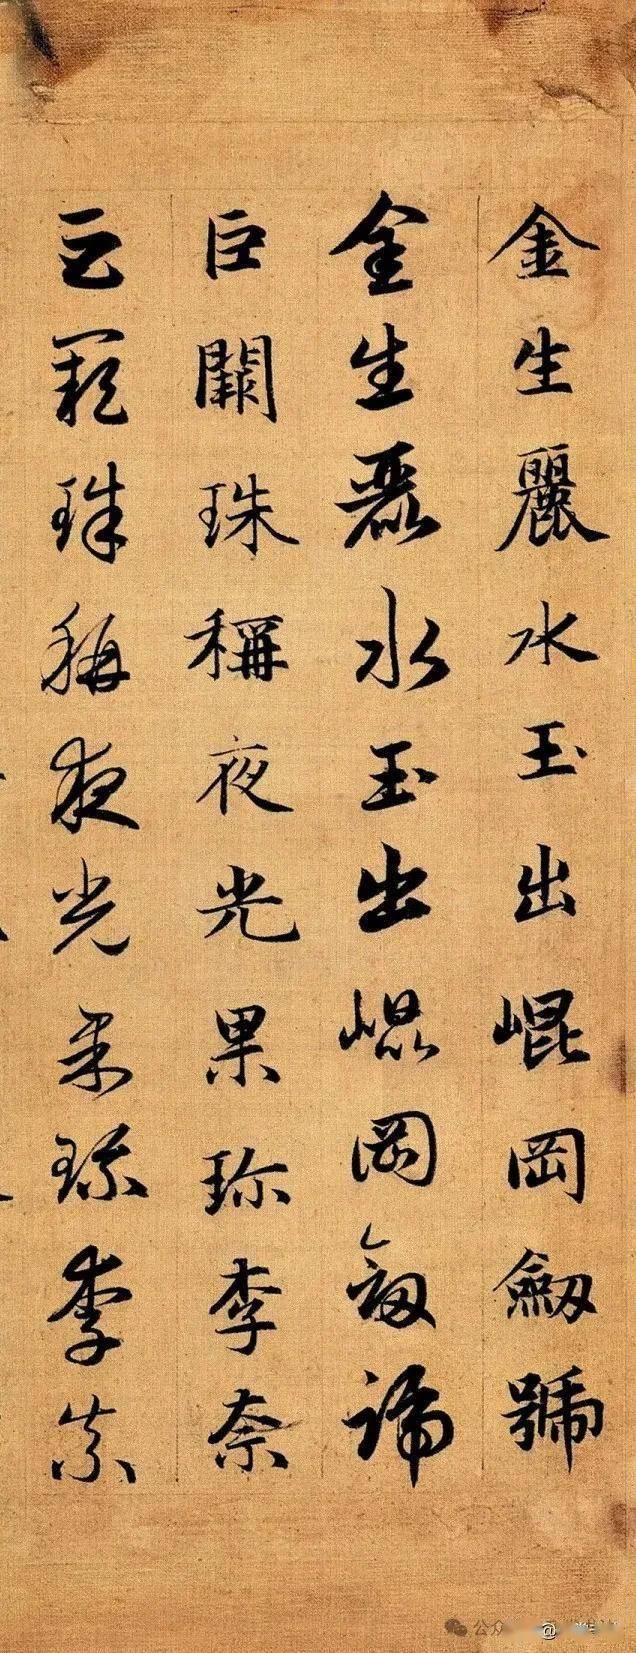 金生麗水玉出崐岡劒號
金生麗水玉出崐岡劒號
巨闕珠稱夜光果珎李奈
巨闕珠稱夜光果珎李柰
公众
@